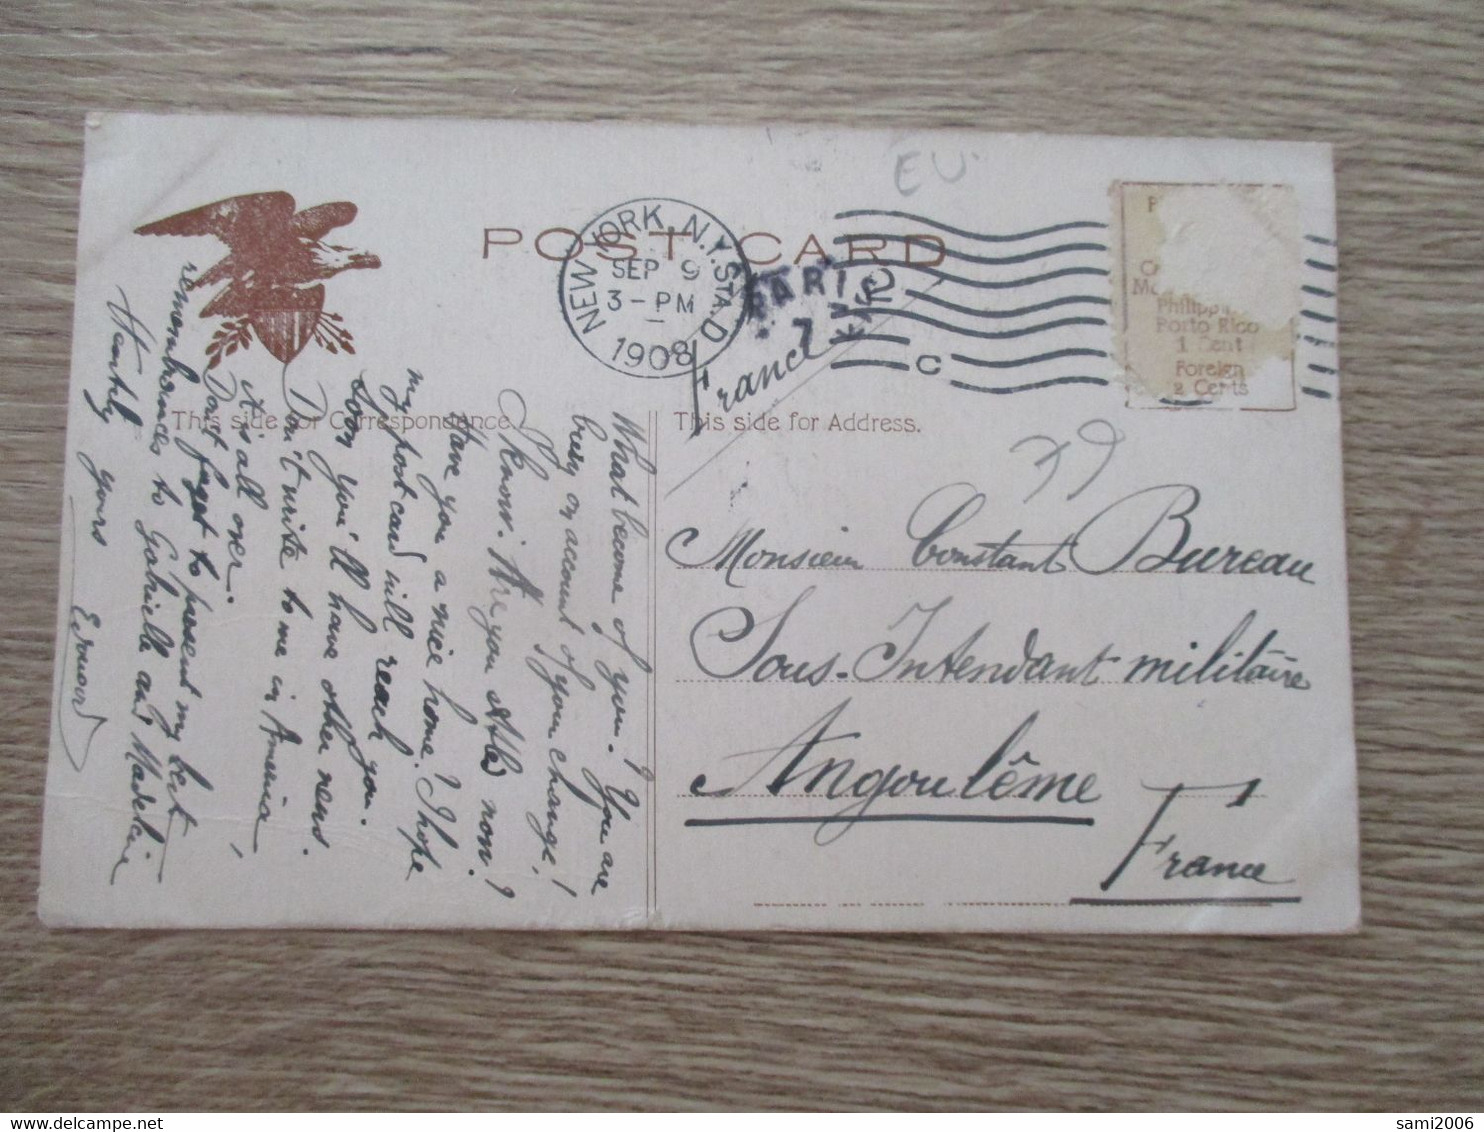 EU.
POST CARD
NEW YORK, N.Y. STA. D.
SEP 9
3-PM
1908
PARIS
7
C
France
Porto Rico
1 Cent
Foreign
2 Cents
This side for Correspondence.
This side for Address.
What become of you? You are
busy on account of your change!
I know. Are you settled now?
Have you a nice home? I hope
my post card will reach you.
Soon you'll have other news.
Don't write to me in America,
it is all over.
Don't forget to present my best
remembrances to Gabrielle and Madeleine
Heartily yours
Edouard
Monsieur Constant Bureau
Sous-Intendant militaire
Angoulême
France
sami2006